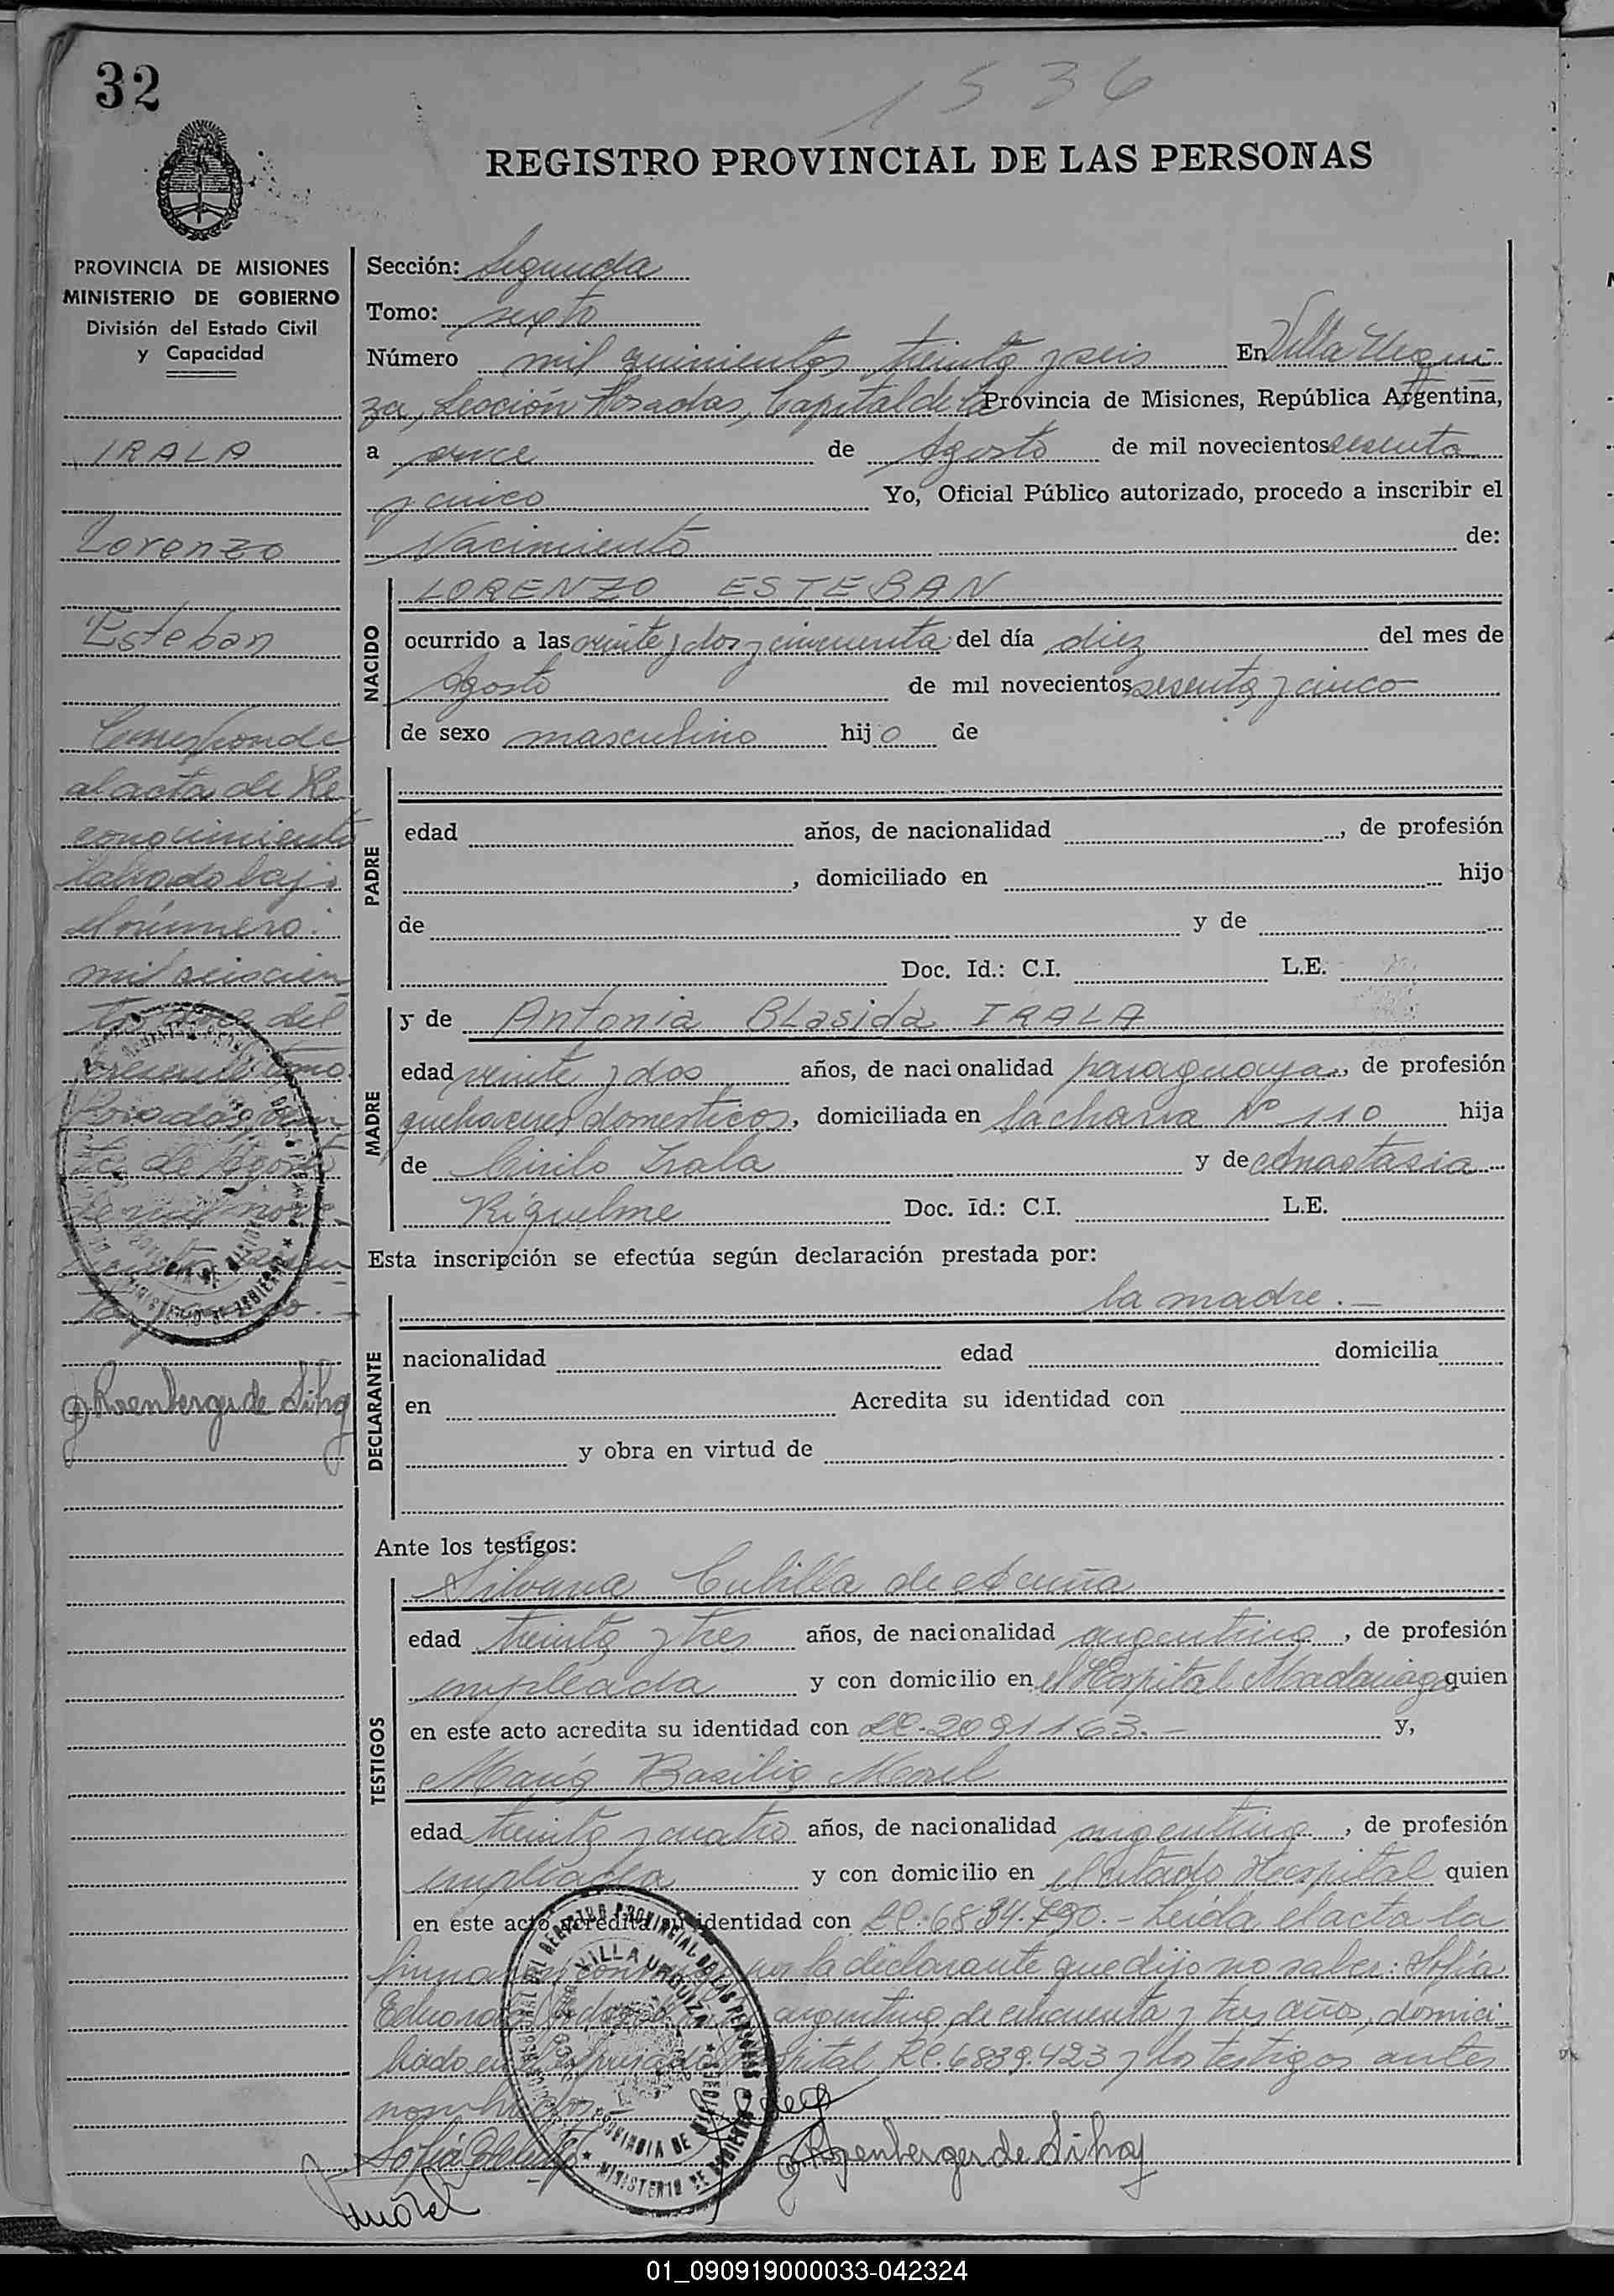 32
1536
REGISTRO PROVINCIAL DE LAS PERSONAS
PROVINCIA DE MISIONES
MINISTERIO DE GOBIERNO
División del Estado Civil
y Capacidad
IRALA
Lorenzo
Esteban
Corresponde
al acta de Re
conocimiento
labrado bajo
el número:
mil seiscien
del
presente tomo
Posadas, vein
te de Agosto
de mil nove
Sección: Segunda
Tomo: sexto
Número mil quinientos treinta y seis En Villa Urqui
za, Sección Posadas, Capital de la Provincia de Misiones, República Argentina,
a once de Agosto de mil novecientos sesenta
y cinco Yo, Oficial Público autorizado, procedo a inscribir el
Nacimiento de:
NACIDO
LORENZO ESTEBAN
ocurrido a las veinte y dos y cincuenta del día diez del mes de
Agosto de mil novecientos sesenta y cinco
de sexo masculino hijo de
PADRE
edad años, de nacionalidad , de profesión
, domiciliado en hijo
de y de
Doc. Id.: C.I. L.E.
MADRE
y de Antonia Blasida IRALA
edad veinte y dos años, de nacionalidad paraguaya, de profesión
quehaceres domesticos, domiciliada en la chacra Nº 110 hija
de Cirilo Irala y de Anastasia
Riquelme Doc. Id.: C.I. L.E.
Esta inscripción se efectúa según declaración prestada por:
DECLARANTE
la madre.—
nacionalidad edad domicilia
en Acredita su identidad con
y obra en virtud de
Ante los testigos:
TESTIGOS
Silvana Cubilla de Acuña
edad treinta y tres años, de nacionalidad argentina, de profesión
empleada y con domicilio en el Hospital Madariaga quien
en este acto acredita su identidad con LC. 2091163.— y,
María Basilia Morel
edad treinta y cuatro años, de nacionalidad argentina, de profesión
empleada y con domicilio en el citado Hospital quien
en este acto acredita su identidad con LC. 6834.790.— Leída el acta la
por la declarante que dijo no saber: Sofía
argentina de cincuenta y tres años, domici
liado en el Hospital LC. 6839.423 y los testigos antes
nombrados.—
REGISTRO PROVINCIAL DE LAS PERSONAS
VILLA URQUIZA
PROVINCIA DE MISIONES
MINISTERIO DE GOBIERNO
Morel
01_090919000033-042324